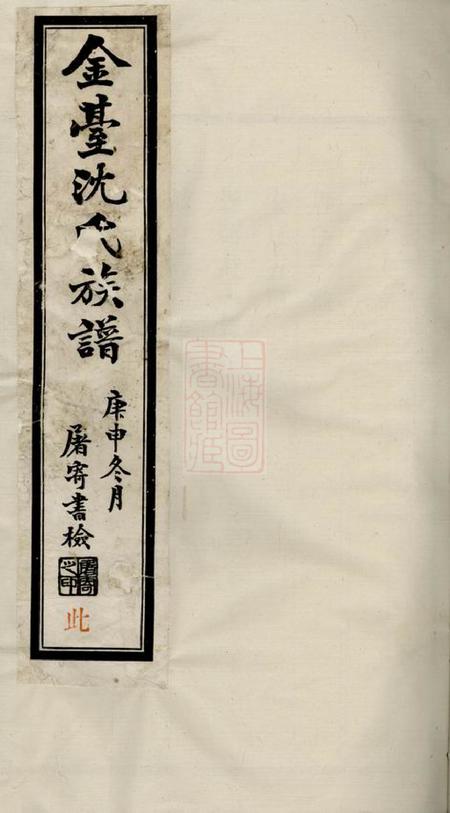 金臺沈氏族譜
庚申冬月
屠寄書檢
屠寄
之印
此
上海圖
書館藏